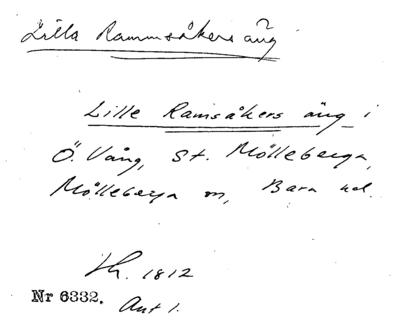 Lilla Rammsåkers äng
Lille Ramsåkers äng i
Ö. Vång, St. Mölleberga,
Mölleberga sn, Bara hd.
Lh. 1812
Nr 6332. Akt 1.